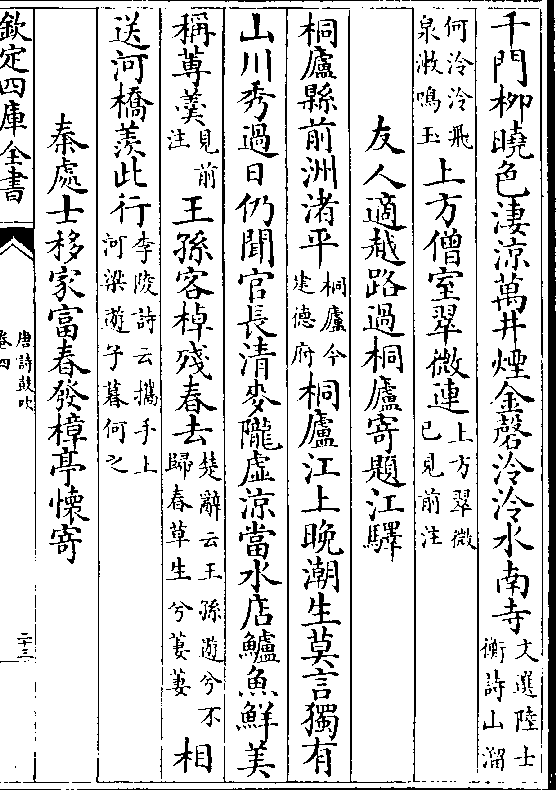 千門柳曉色淒涼萬井煙金磬泠泠水南寺文選陸士衡詩山溜
何泠泠飛泉漱鳴玉上方僧室翠微連上方翠微已見前注
友人適越路過桐廬寄題江驛
桐廬縣前洲渚平桐廬今建德府桐廬江上晚潮生莫言獨有
山川秀過日仍聞官長清麥隴虚涼當水店鱸魚鮮美
稱蓴羹見前注王孫客棹殘春去楚辭云王孫遊兮不歸春草生兮萋萋相
送河橋羨此行李陵詩云攜手上河梁遊子暮何之
秦處士移家富春發樟亭懷寄
欽定四庫全書
唐詩鼓吹
卷四
二十三